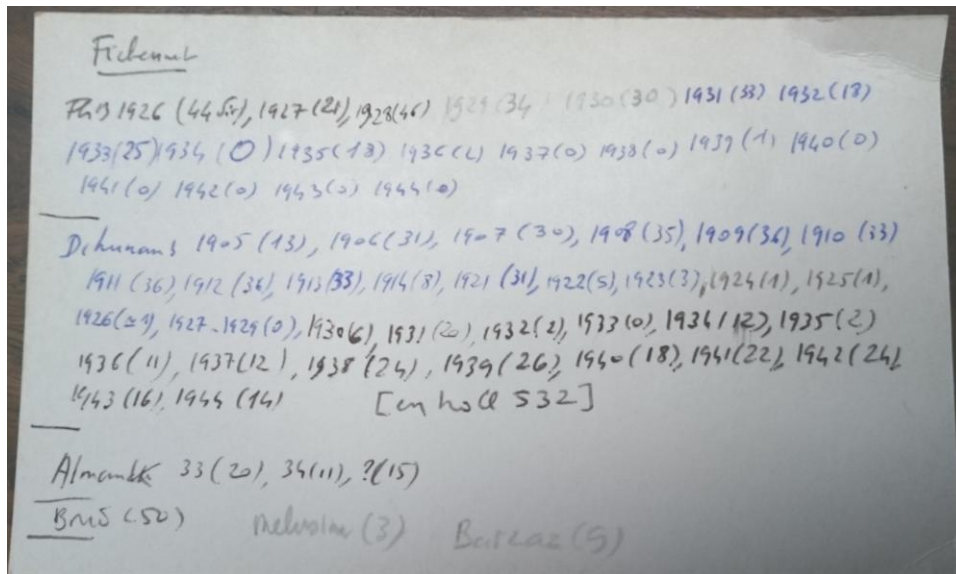 Fichennet
1926 (44), 1927 (21), 1928 (46) 1929 (34 1930 (30) 1931 (33) 1932 (18)
1933 (25) 1934 (0) 1935 (13) 1936 1937 (0) 1938 (0) 1939 (1) 1940 (0)
1941 (0) 1942 (0) 1943 (0) 1944 (0)
Dihunamb 1905 (13), 1906 (31), 1907 (30), 1908 (35), 1909 (36), 1910 (33)
1911 (36), 1912 (36), 1913 (33), 1914 (8), 1921 (31), 1922 (5), 1923 (3), 1924 (1), 1925 (1),
1926, 1927-1929 (0), 1930 (6), 1931 (20), 1932 (2), 1933 (0), 1934 (12), 1935 (2)
1936 (11), 1937 (12), 1938 (24), 1939 (26), 1940 (18), 1941 (22), 1942 (24),
1943 (16), 1944 (14) [en holl 532]
33 (20), 34 (11), ? (15)
(50) (3) (5)